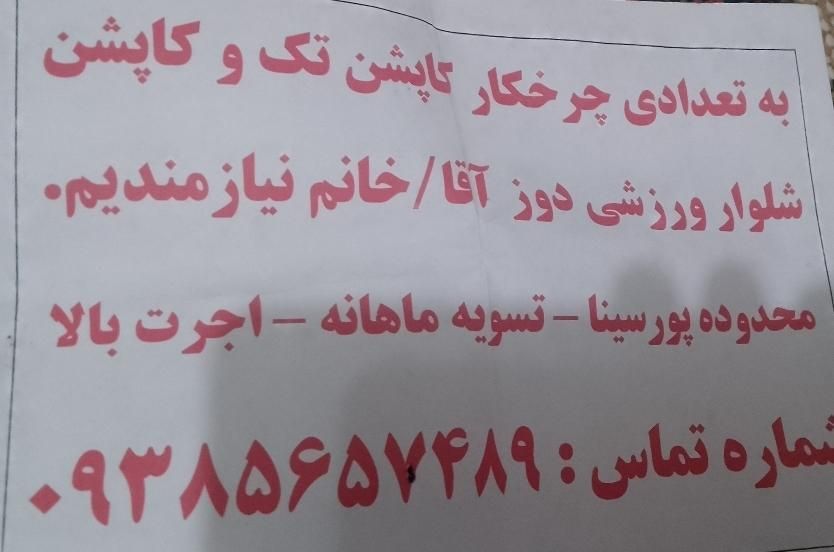 به تعدادی چرخکار کاپشن تک و کاپشن
شلوار ورزشی دوز آقا/خانم نیازمندیم.
محدوده پورسینا – تسویه ماهانه – اجرت بالا
شماره تماس : ۰۹۳۸۵۶۵۷۴۸۹